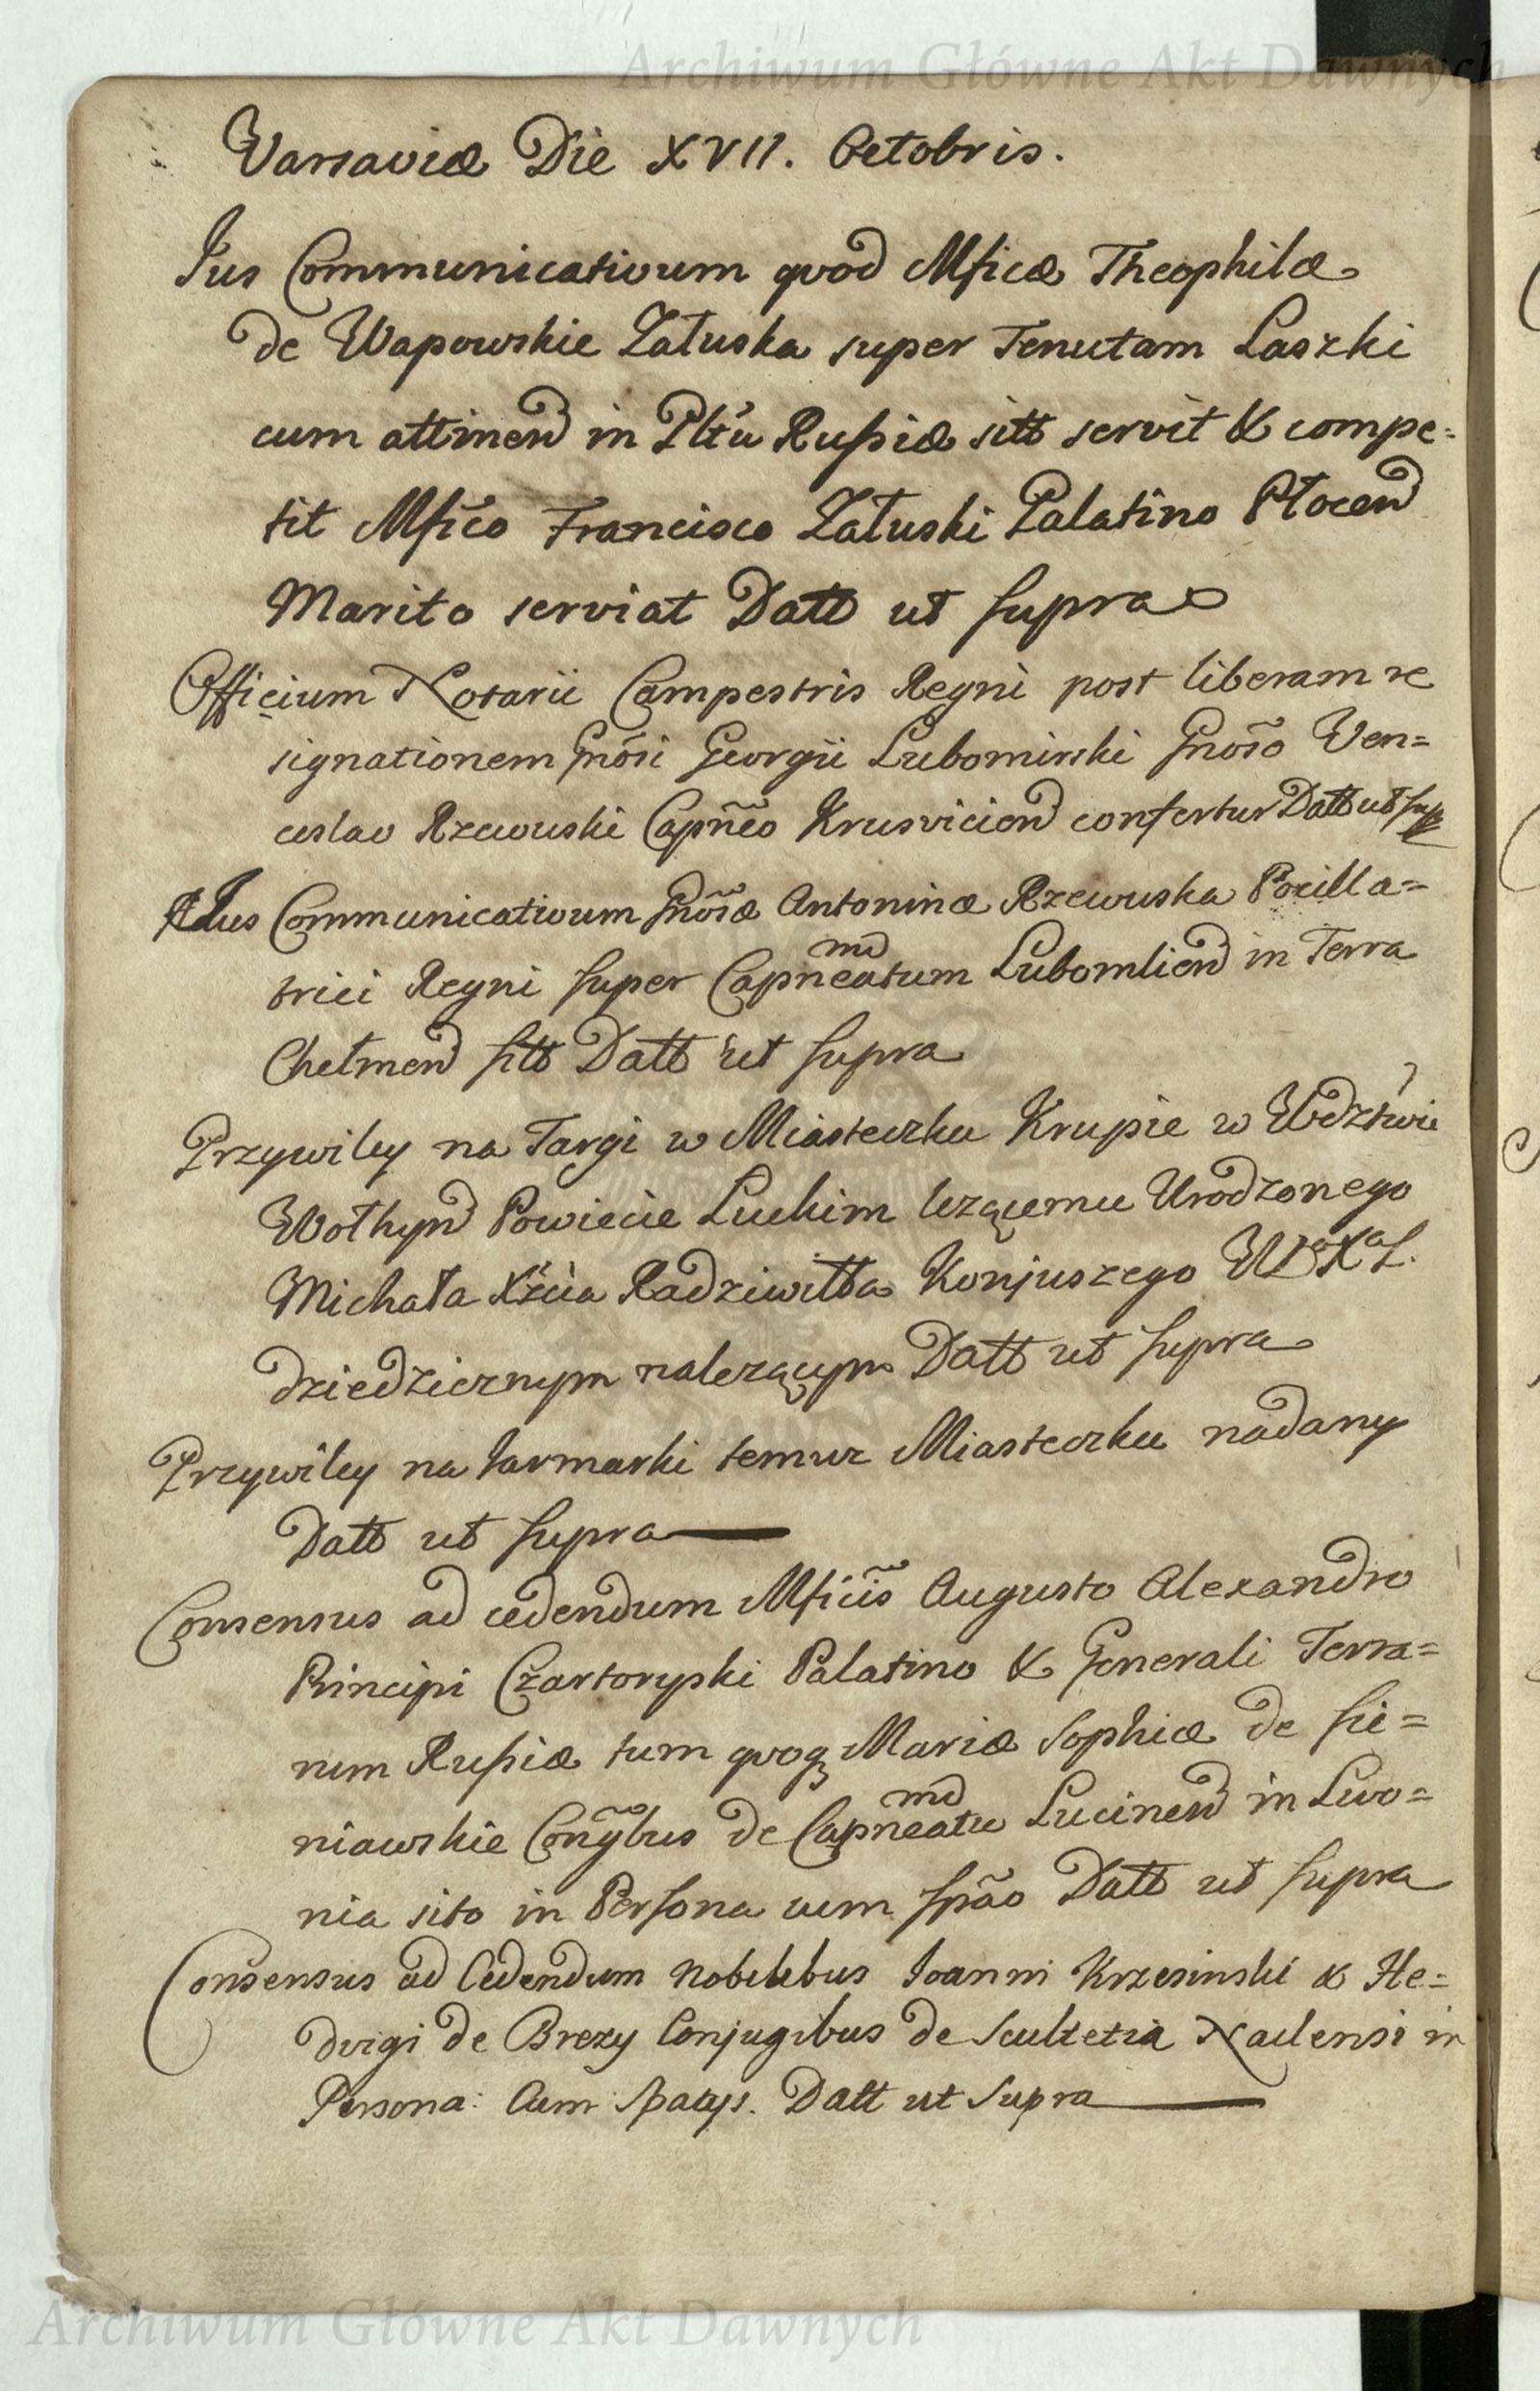 Archiwum Główne Akt Dawnych
Varsaviæ Die XVII. Octobris.
Jus Communicativum qvod Mficæ Theophilæ
de Wapowskie Załuska super Tenutam Laszki
cum attinen in Pltũ Rusßiæ sitt servit & compe=
tit Mfico Francisco Załuski Palatino Płocen
Marito serviat Datt ut supra
Officium Notarii Campestris Regni post liberam re
signationem Gnõsi Georgii Lubomirski Gnoso Ven=
ceslao Rzewuski Capñeo Krusvicien confertur Datt ut sup
Jus Communicativum Gnõsæ Antoninæ Rzewuska Pocilla=
trici Regni super Capneatum Lubomlien in Terra
Chełmen sitt Datt ut supra
Przywiley na Targi w Miasteczku Krupie w Wdztwie
Wołhyn Powiecie Luckim lezącemu Urodzonego
Michała Xżcia Radziwiłła Konjuszego W°X°L.
dziedzicznym nalezącym Datt ut supra
Przywiley na Jarmarki temuz Miasteczku nadany
Datt ut supra
Consensus ad cedendum Mficis Augusto Alexandro
Principi Czartoryski Palatino & Generali Terra=
rum Rusßiæ tum qvoq Mariæ Sophiæ de Sie=
niawskie Conybus de Capneatu Lucinen in Livo=
nia sito in Persona cum spão Datt ut supra
Consensus ad Cedendum Nobilibus Joanni Krzesinski & He=
dvigi de Brezy Conjugibus de Scultetia Naclensi in
Persona: Cum Spatys. Datt ut Supra
Archiwum Główne Akt Dawnych